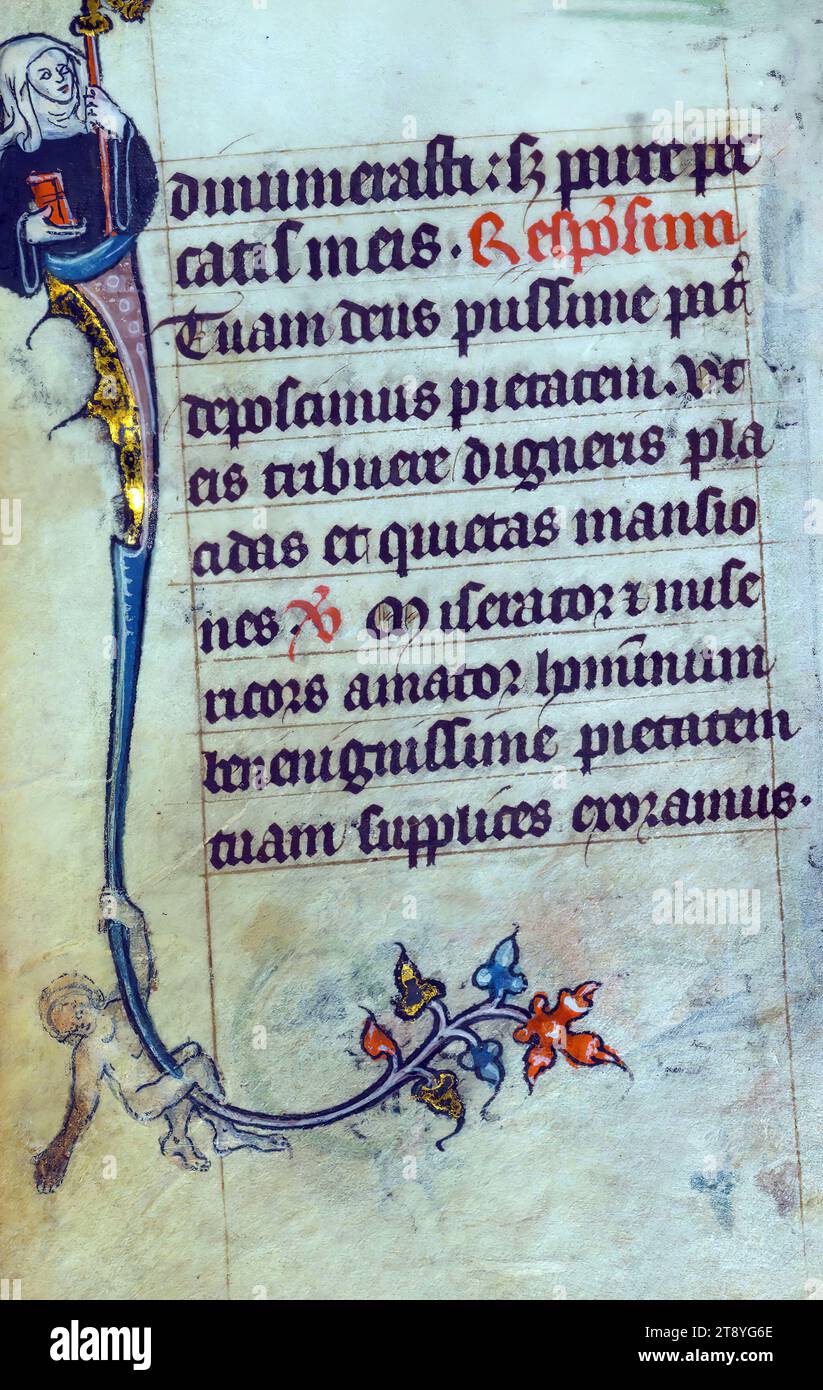 dinumerasti: sz parce pec
catis meis. Respo̅sum
Tuam deus piissime pat̅
deposcimus pietatem. Ut
eis tribuere digneris pla
cidas et quietas mansio
nes. V̅ Miserator ⁊ mise
ricors amator homi̅num
benenignissime pietatem
tuam supplices exoramus.
alamy
alamy
alamy
alamy
Image ID: 2T8YG6E
www.alamy.com